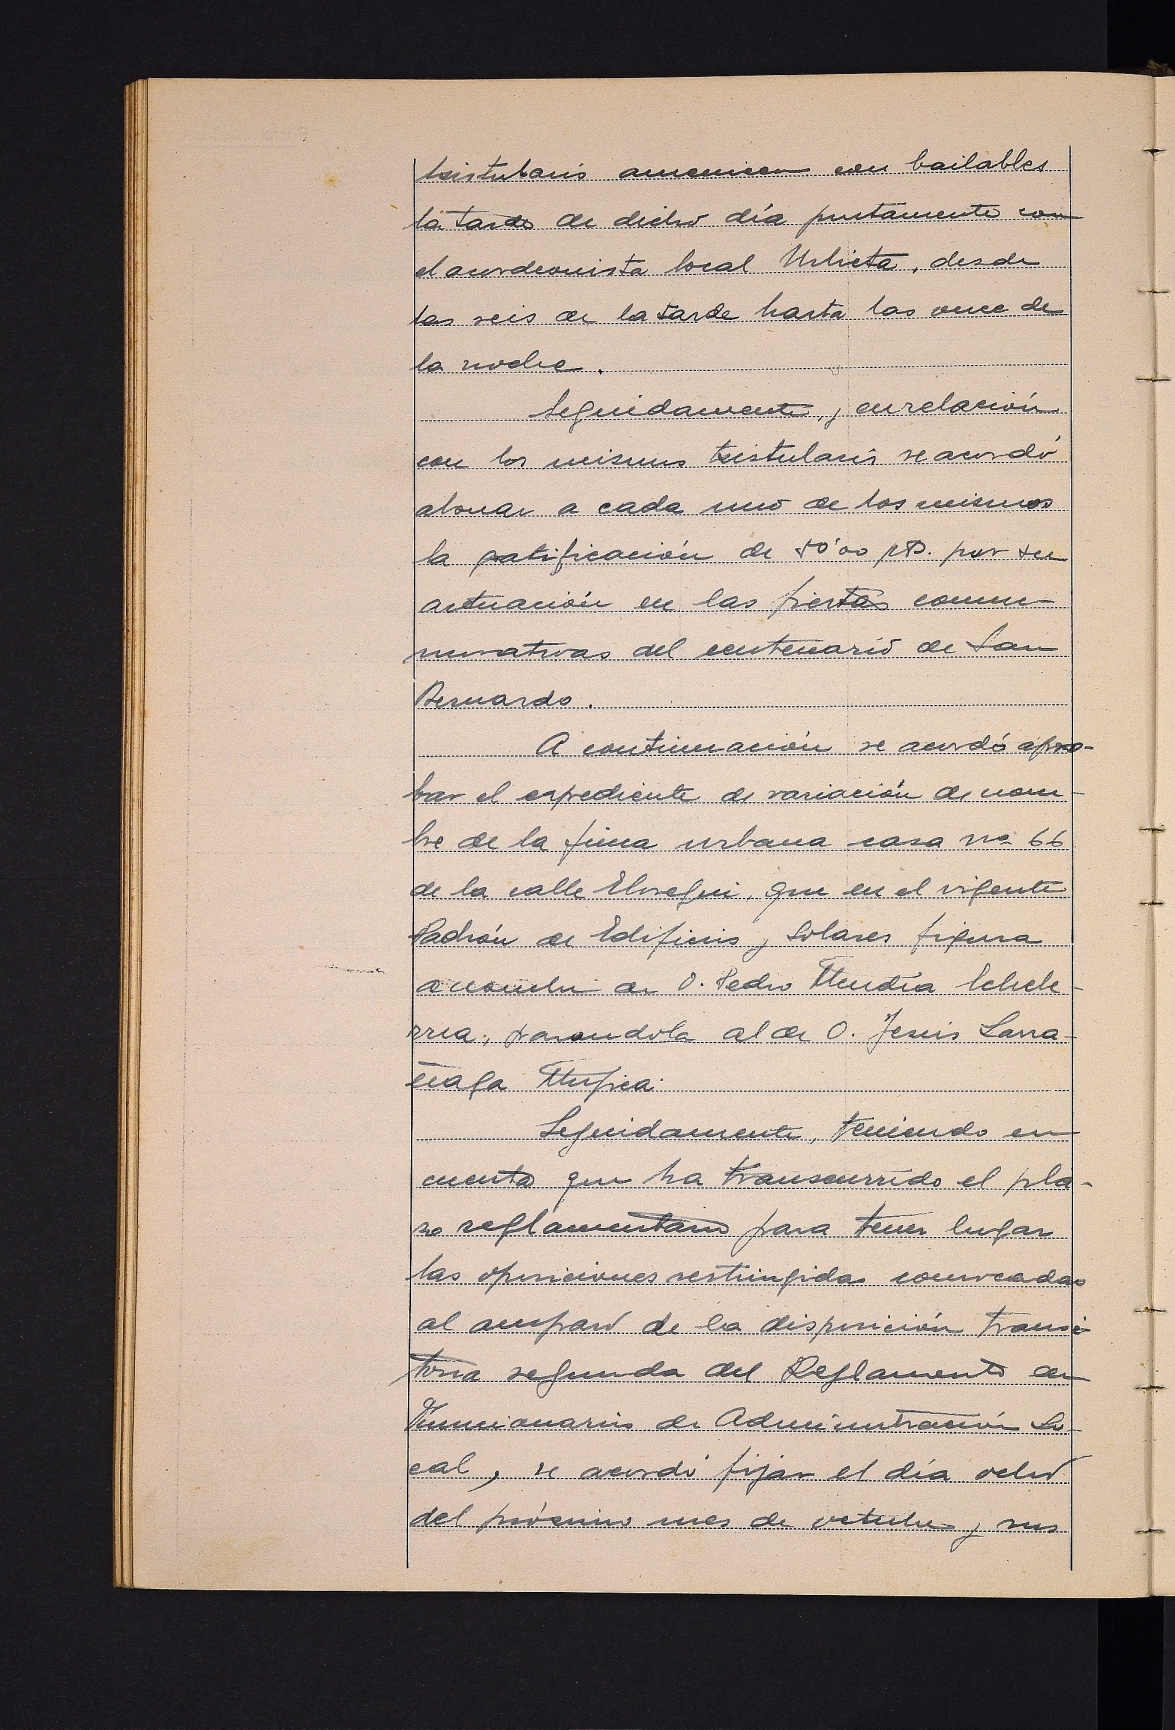 txistularis amenicen con bailables
la tarde de dicho día juntamente con
el acordeonista local Urbieta, desde
las seis de la tarde hasta las once de
la noche.
Seguidamente, y en relación
con los mismos txistularis se acordó
abonar a cada uno de los mismos
la gratificación de 50'00 pts. por su
actuación en las fiestas conme-
morativas del centenario de San
Bernardo.
A continuación se acordó apro-
bar el expediente de variación de nom-
bre de la finca urbana casa nº 66
de la calle Elosegui, que en el vigente
Padrón de Edificios y Solares figura
a nombre de D. Pedro Mendía Echeve-
rria, pasandola al de D. Jesús Larra-
ñaga Mugica.
Seguidamente, teniendo en
cuenta que ha transcurrido el pla-
zo reglamentario para tener lugar
las oposiciones restringidas convocadas
al amparo de la disposición transi-
toria segunda del Reglamento de
Funcionarios de Administración Lo-
cal, se acordó fijar el día ocho
del próximo mes de octubre y sus